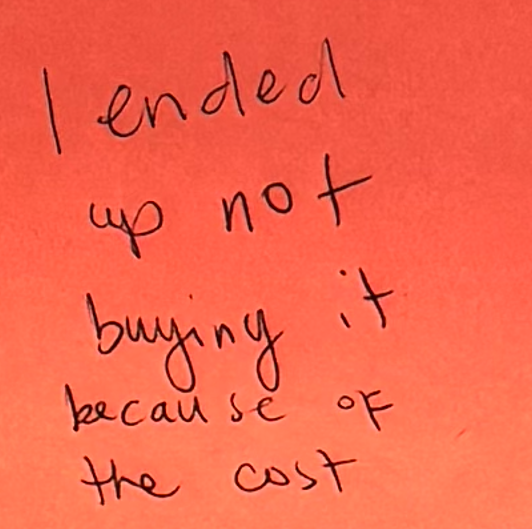 I ended
up not
buying it
because of
the cost